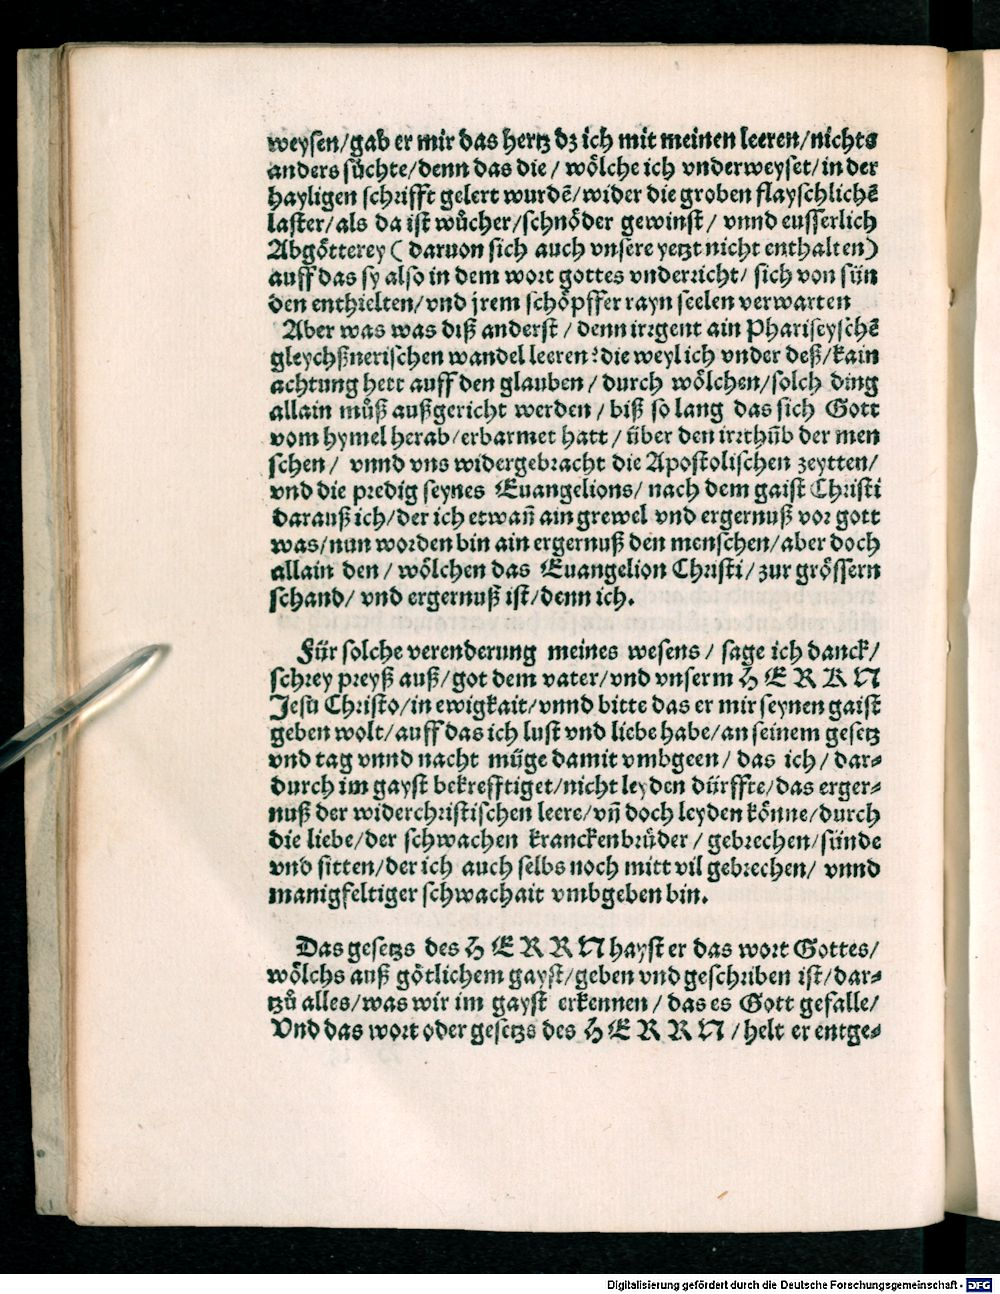 weysen/gab er mir das hertz dz ich mit meinen leeren/nichts
anders sůchte/denn das die/ wölche ich vnderweyset/ in der
hayligen schrifft gelert wurdē/wider die groben flayschlichē
laster/als da ist wůcher/schnöder gewinst/ vnnd eusserlich
Abgötterey ( daruon sich auch vnsere yetzt nicht enthalten)
auff das sy also in dem wort gottes vnderricht/ sich von sün
den enthielten/vnd jrem schöpffer rayn seelen verwarten
Aber was was diß anderst/ denn irrgent ain Phariseyschē
gleychßnerischen wandel leeren? die weyl ich vnder deß/kain
achtung hett auff den glauben/ durch wölchen/solch ding
allain můß außgericht werden/ biß so lang das sich Gott
vom hymel herab/erbarmet hatt/ über den irrthūb der men
schen/ vnnd vns widergebracht die Apostolischen zeytten/
vnd die predig seynes Euangelions/ nach dem gaist Christi
darauß ich/der ich etwañ ain grewel vnd ergernuß vor gott
was/nun worden bin ain ergernuß den menschen/aber doch
allain den/ wölchen das Euangelion Christi/ zur grössern
schand/ vnd ergernuß ist/denn ich.
Für solche verenderung meines wesens/ sage ich danck/
schrey preyß auß/got dem vater/vnd vnserm HERRN
Jesu Christo/in ewigkait/vnnd bitte das er mir seynen gaist
geben wolt/auff das ich lust vnd liebe habe/an seinem gesetz
vnd tag vnnd nacht müge damit vmbgeen/ das ich/ dar-
durch im gayst bekrefftiget/nicht leyden dürffte/das erger-
nuß der widerchristischen leere/vñ doch leyden könne/durch
die liebe/der schwachen kranckenbrüder/ gebrechen/sünde
vnd sitten/der ich auch selbs noch mitt vil gebrechen/ vnnd
manigfeltiger schwachait vmbgeben bin.
Das gesetzs des HERRN hayst er das wort Gottes/
wölchs auß götlichem gayst/geben vnd geschriben ist/dar-
tzů alles/was wir im gayst erkennen/das es Gott gefalle/
Vnd das wort oder gesetzs des HERRN/helt er entge-
Digitalisierung gefördert durch die Deutsche Forschungsgemeinschaft - DFG